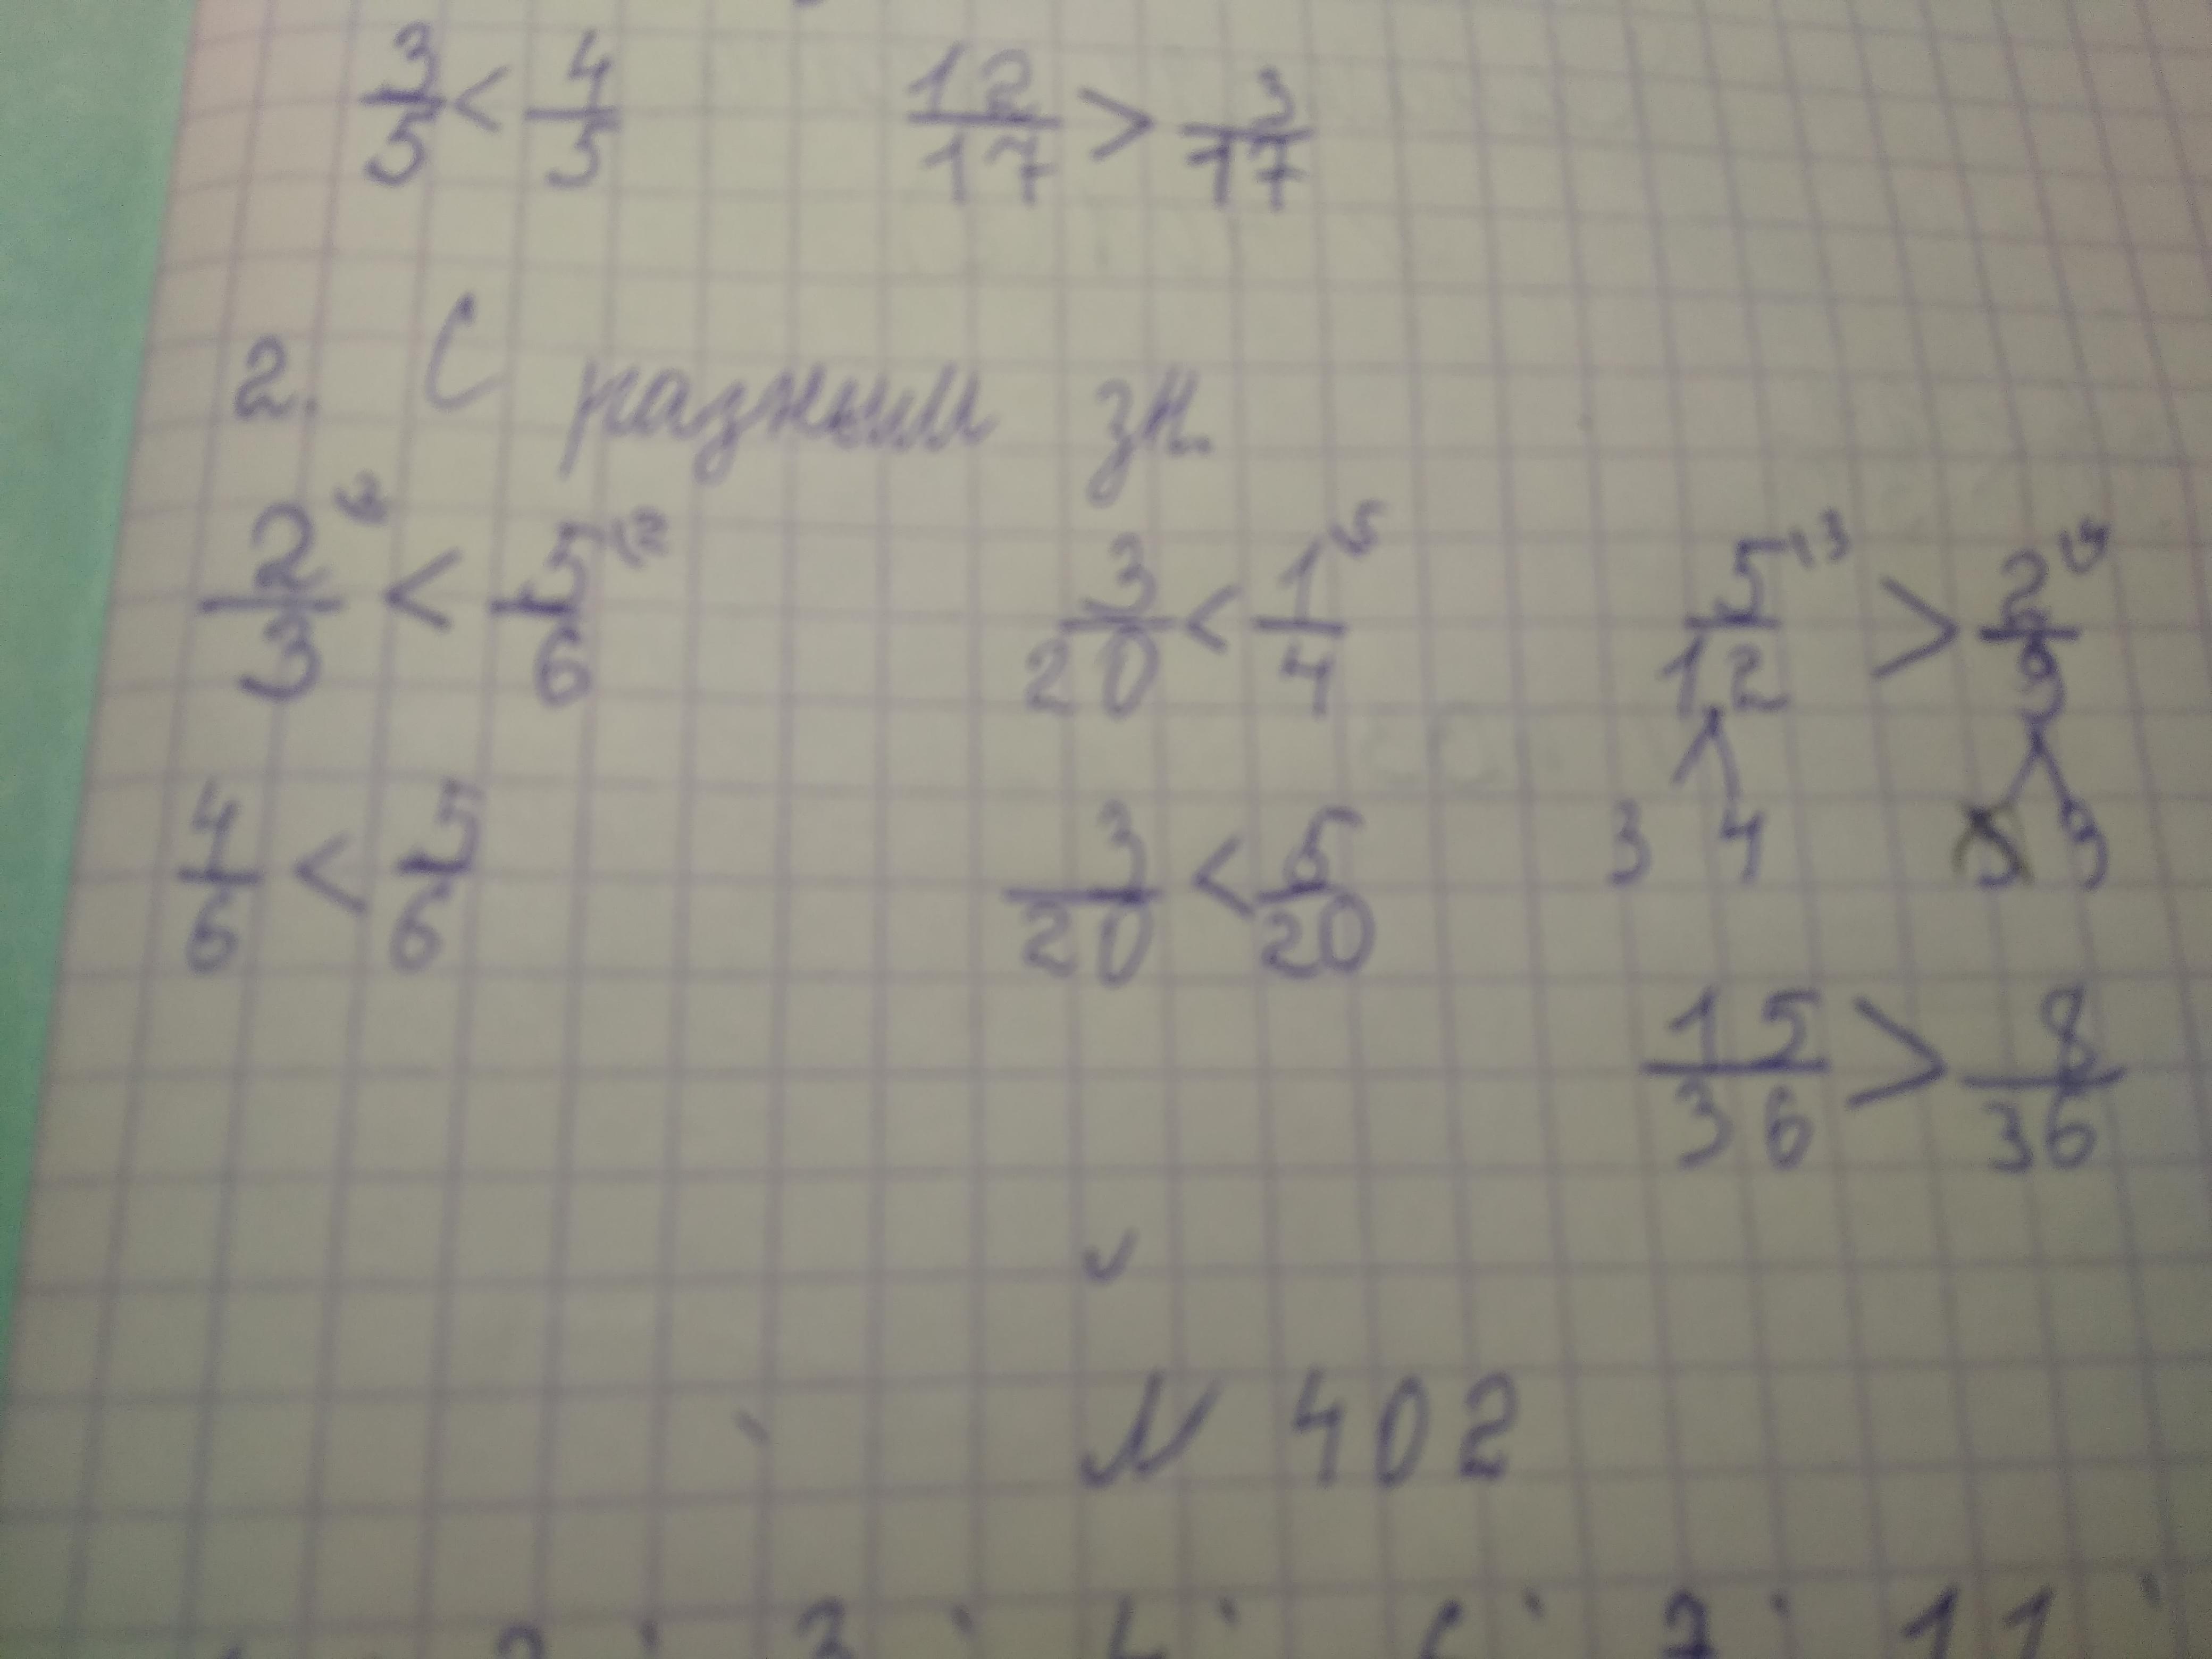 3/5 < 4/5 12/17 > 3/17
2. С разным зн.
2/3 < 5/6 3/20 < 1/4 5/12 > 2/9
3 4 3
4/6 < 5/6 3/20 < 5/20
15/36 > 8/36
N 402